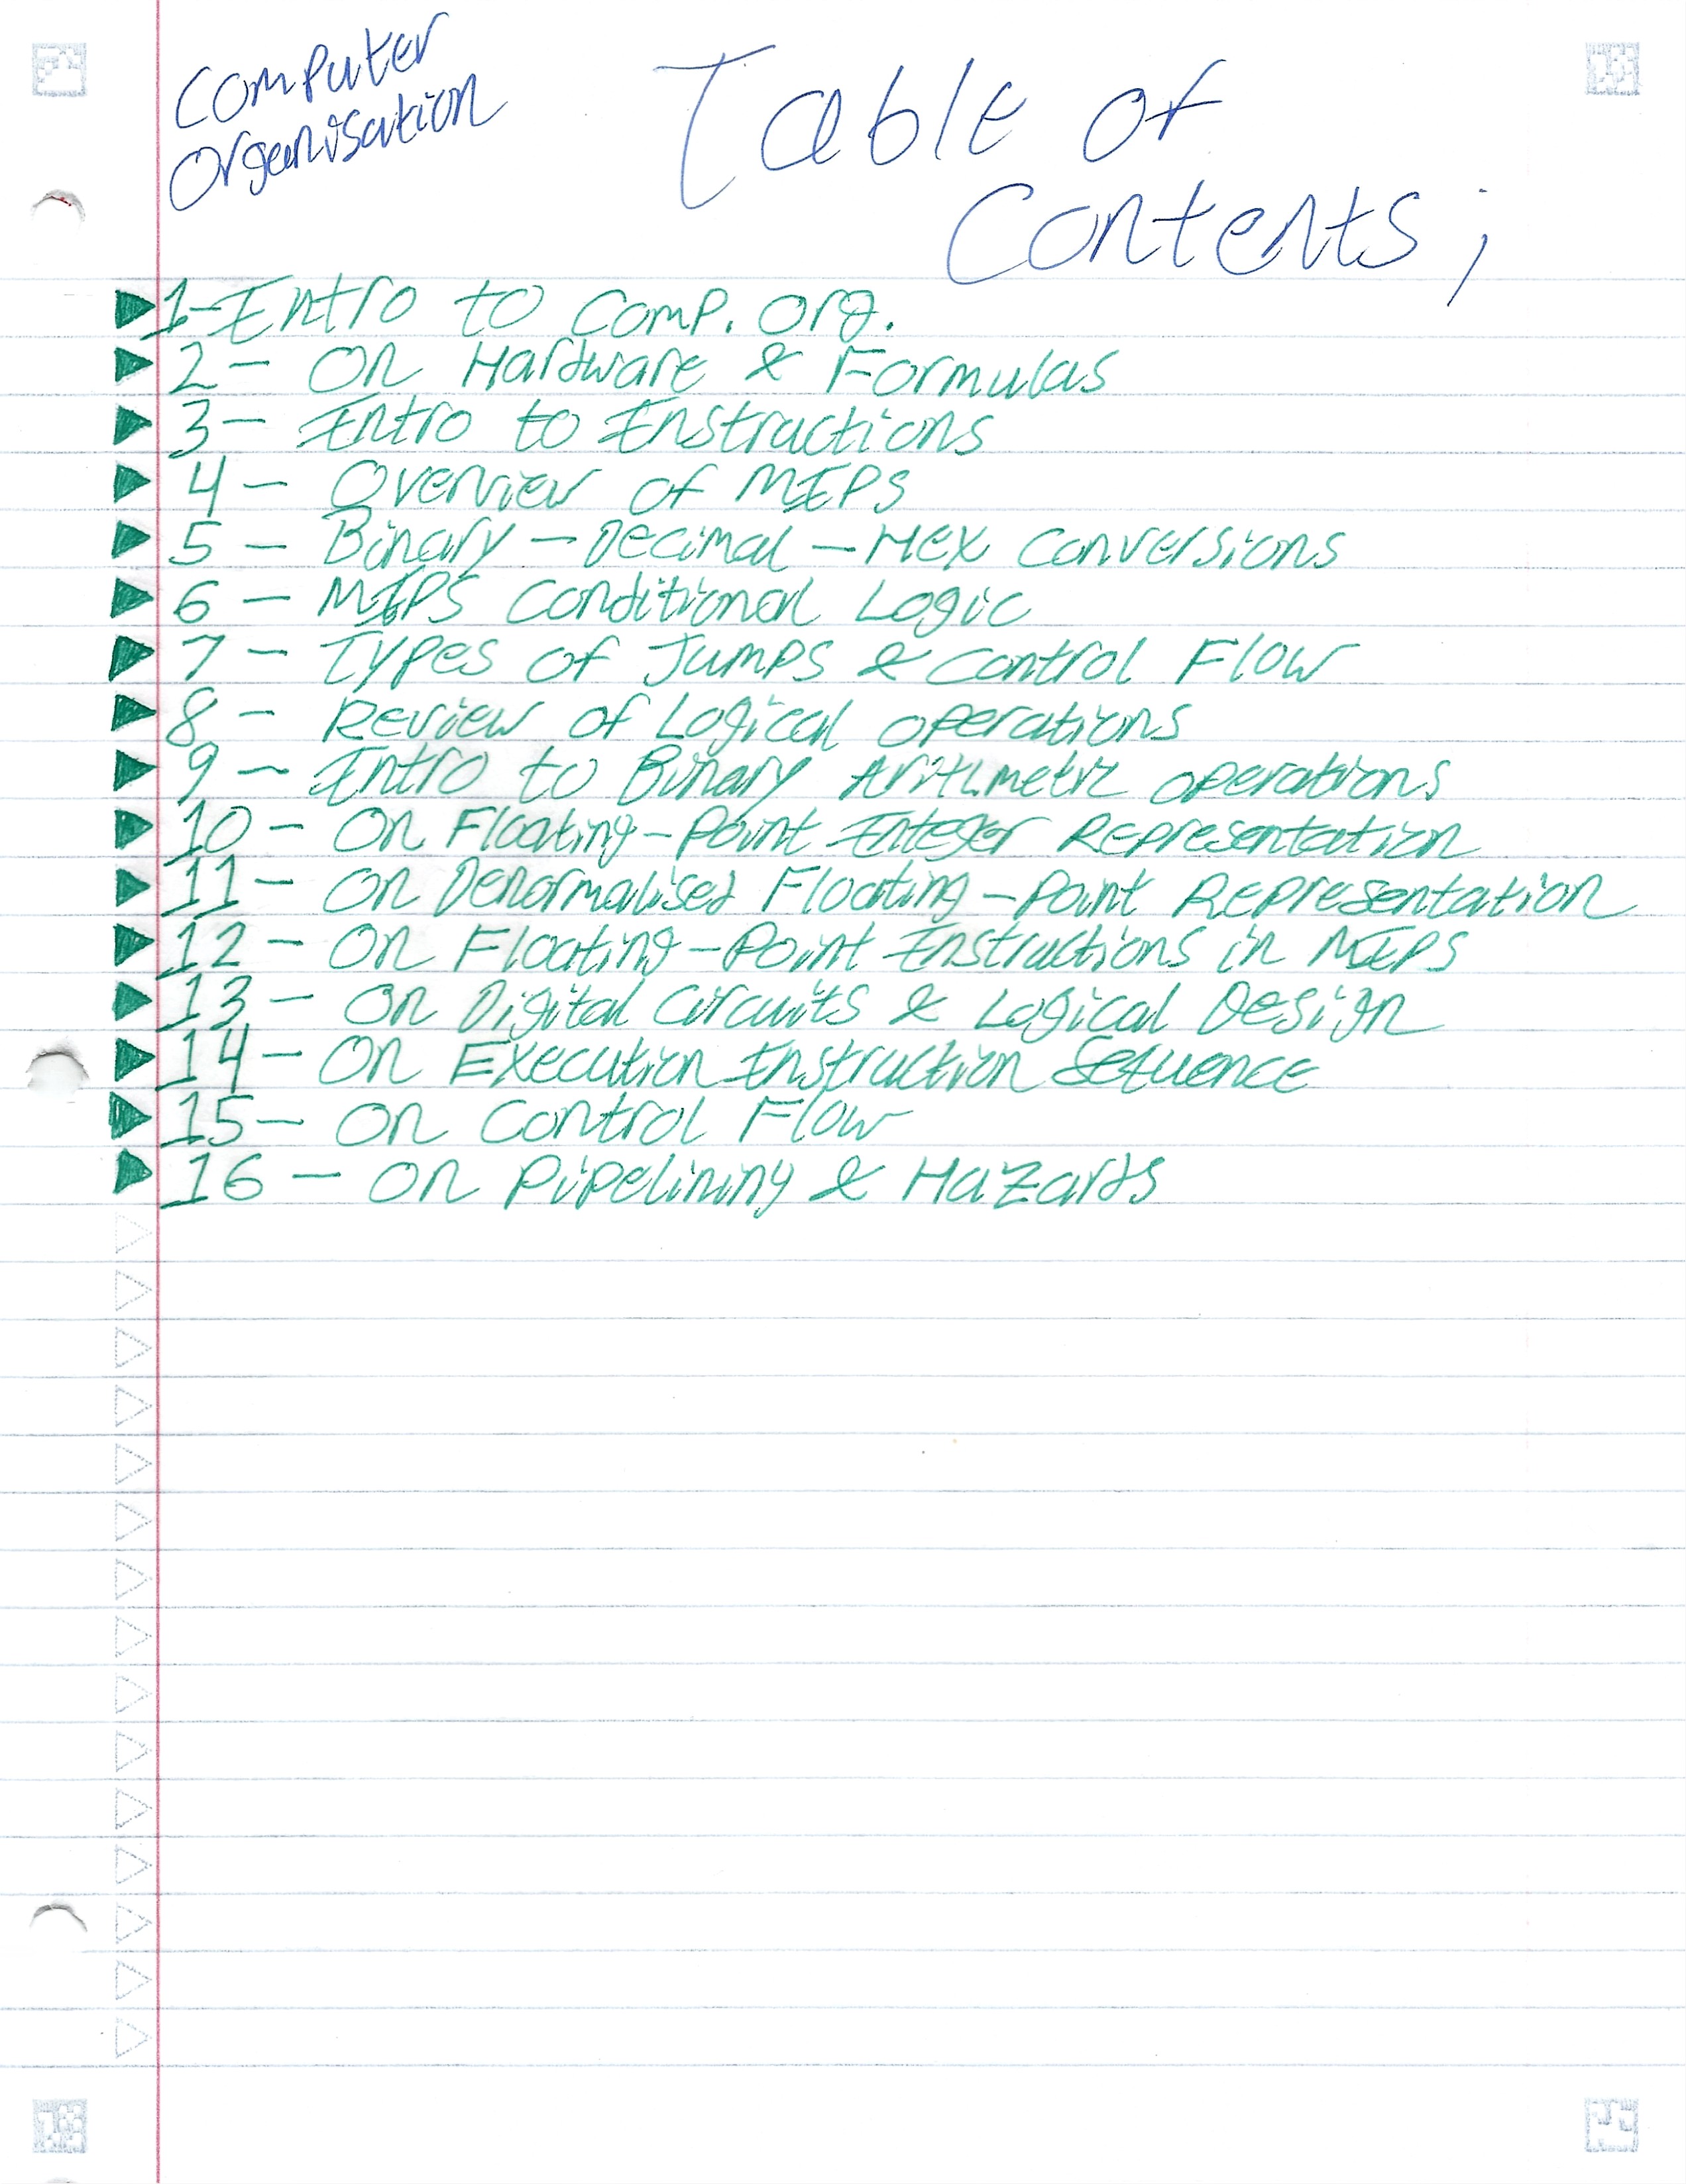 Computer
Organisation
Table of
Contents;
1-Intro to Comp. Org.
2- On Hardware & Formulas
3- Intro to Instructions
4- Overview of MIPS
5- Binary-Decimal-Hex Conversions
6- MIPS Conditional Logic
7- Types of Jumps & Control Flow
8- Review of Logical Operations
9- Intro to Binary Arithmetic Operations
10- On Floating-Point Integer Representation
11- On Denormalised Floating-Point Representation
12- On Floating-Point Instructions in MIPS
13- On Digital Circuits & Logical Design
14- On Execution Instruction Sequence
15- On Control Flow
16- On Pipelining & Hazards